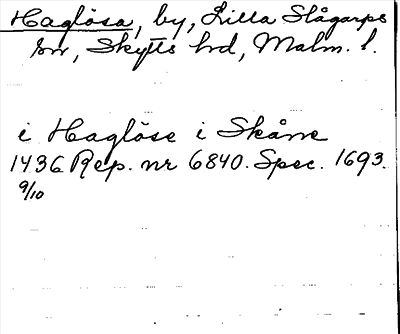 Haglösa, by, Lilla Slågarps
sn, Skytts hd, Malm. l.
i Haglöse i Skåne
1436 Rep. nr 6840. Spec. 1693.
9/10